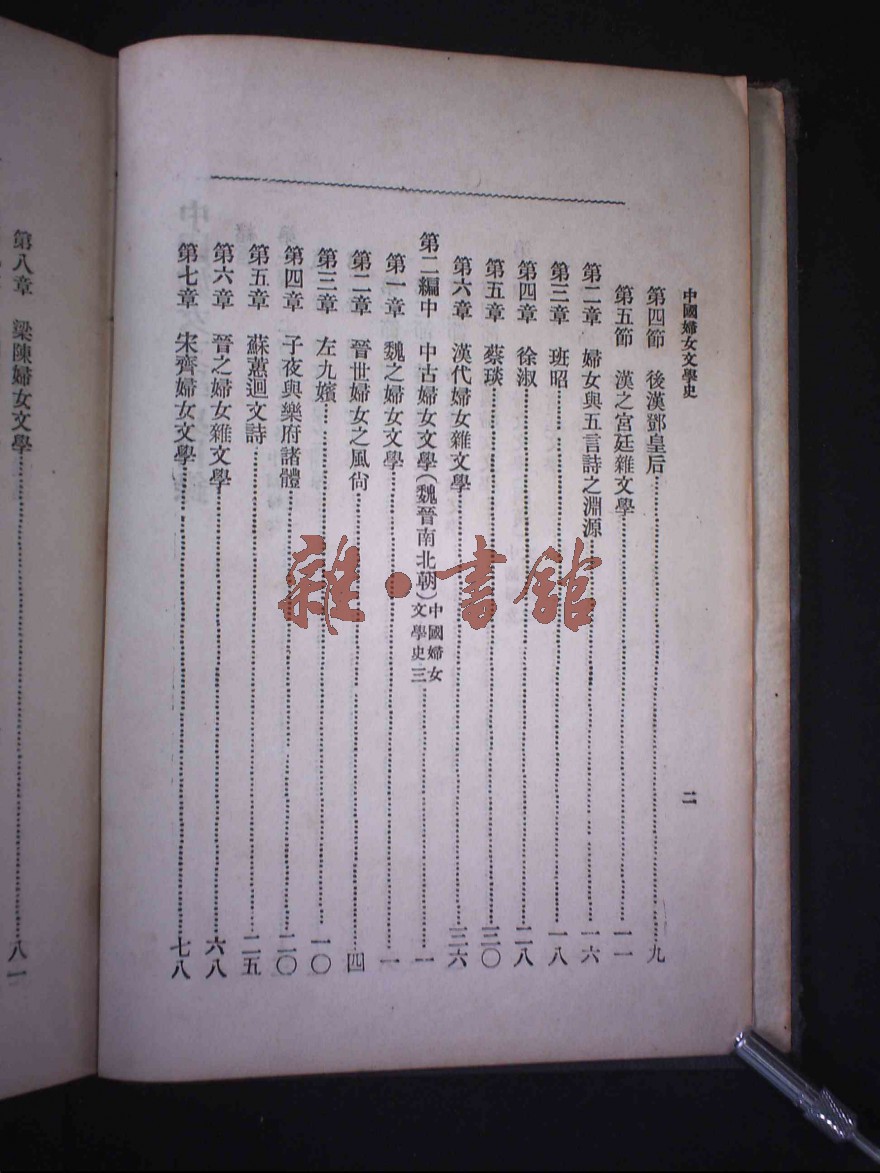 中國婦女文學史
二
第四節 後漢鄧皇后 九
第五節 漢之宮廷雜文學 一一
第二章 婦女與五言詩之淵源 一六
第三章 班昭 一八
第四章 徐淑 二八
第五章 蔡琰 三〇
第六章 漢代婦女雜文學 三六
第二編中 中古婦女文學(魏晉南北朝)中國婦女文學史三 一
第一章 魏之婦女文學 一
第二章 晉世婦女之風尙 四
第三章 左九嬪 一〇
第四章 子夜與樂府諸體 二〇
第五章 蘇蕙迴文詩 二五
第六章 晉之婦女雜文學 六八
第七章 宋齊婦女文學 七八
第八章 梁陳婦女文學 八一
雜·書館